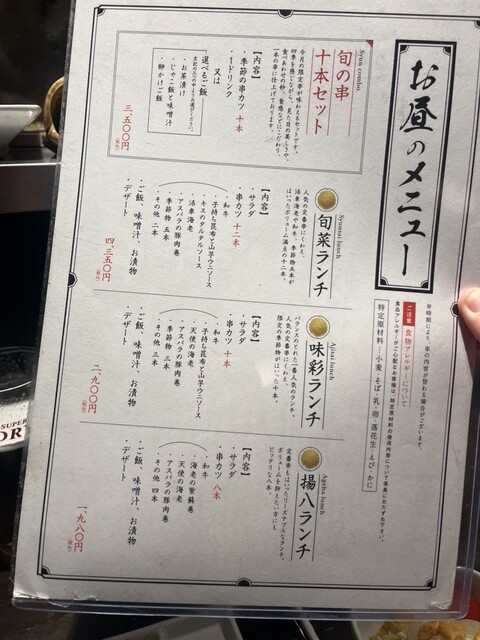 お昼のメニュー
※時期により、串の内容が替わる場合がございます。
ご注意 食物アレルギーについて
食品アレルギーがご心配なお客様は、特定原材料の使用内容について係員におたずね下さい。
特定原材料:小麦・そば・乳・卵・落花生・えび・かに
Syun combo
旬の串
十本セット
今月の限定串が味わえるセットです。
四季を感じながら、見た目の美しさや、
食べあわせの妙、食感などにこだわり、
一本の串に仕上げております。
【内容】
・季節の串カツ 十本
・1ドリンク
又は
・選べるご飯
・お茶漬け
・じゃこ飯と味噌汁
・卵かけご飯
三、五〇〇円
(税込)
Syunsai lunch
旬菜ランチ
人気の定番串にくわえ、
活車海老や和牛、季節物五本が
はいったボリューム満点の十二本。
【内容】
・サラダ
・串カツ 十二本
・和牛
・子持ち昆布と山芋ウニソース
・キスのタルタルソース
・活車海老
・アスパラの豚肉巻
・季節物 五本
・その他 二本
・ご飯、味噌汁、お漬物
・デザート
四、三五〇円
(税込)
Ajisai lunch
味彩ランチ
バランスのとれた一番人気のランチ。
人気の定番串にくわえ、
限定の季節物がはいった十本。
【内容】
・サラダ
・串カツ 十本
・和牛
・子持ち昆布と山芋ウニソース
・天使の海老
・アスパラの豚肉巻
・季節物 三本
・その他 三本
・ご飯、味噌汁、お漬物
・デザート
二、九〇〇円
(税込)
Ageha lunch
揚八ランチ
定番串もはいったリーズナブルなランチ。
ボリュームを抑えたい方にも
ピッタリな八本。
【内容】
・サラダ
・串カツ 八本
・和牛
・海老の紫蘇巻
・天使の海老
・アスパラの豚肉巻
・その他 四本
・ご飯、味噌汁、お漬物
・デザート
一、九八〇円
(税込)
SUPER